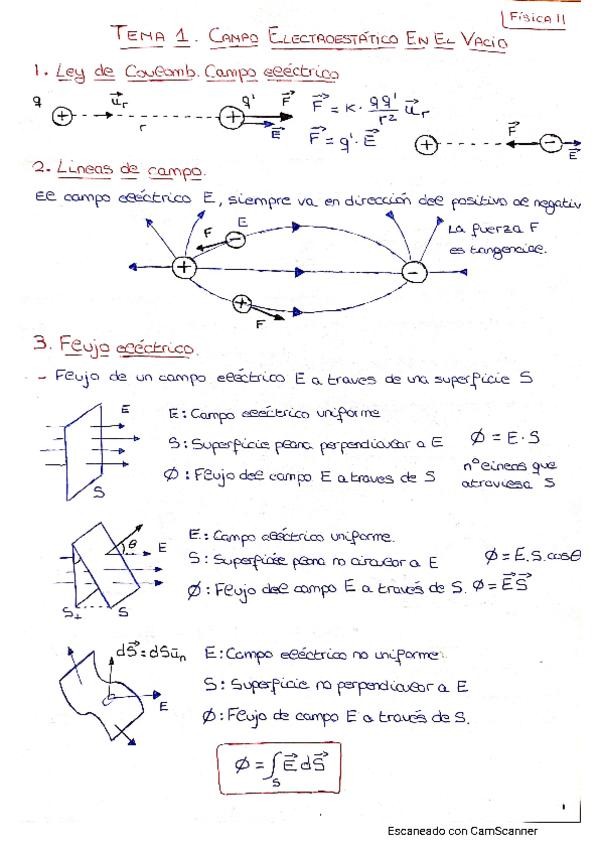 Física II
TEMA 1. CAMPO ELECTROESTÁTICO EN EL VACIO
1. Ley de Coulomb. Campo eléctrico
q u⃗r q' F⃗ F⃗ = K · qq'/r² u⃗r
r E⃗ F⃗ = q' · E⃗ F⃗ E⃗
2. Lineas de campo.
El campo eléctrico E, siempre va en dirección del positivo al negativ
F E La fuerza F
es tangencial.
+ -
F
3. Flujo eléctrico.
- Flujo de un campo eléctrico E a traves de una superficie S
E E: Campo eléctrico uniforme
S: Superficie plana perpendicular a E Ø = E · S
Ø: Flujo del campo E a traves de S nº lineas que
S atraviesa S
E: Campo eléctrico uniforme.
θ E S: Superficie plana no circular a E Ø = E.S.cosθ
Ø: Flujo del campo E a través de S. Ø = E⃗S⃗
S⊥ S
dS⃗ = dS u⃗n E: Campo eléctrico no uniforme.
S: Superficie no perpendicular a E
E
Ø: Flujo de campo E a través de S.
Ø = ∫S E⃗ dS⃗
1
Escaneado con CamScanner